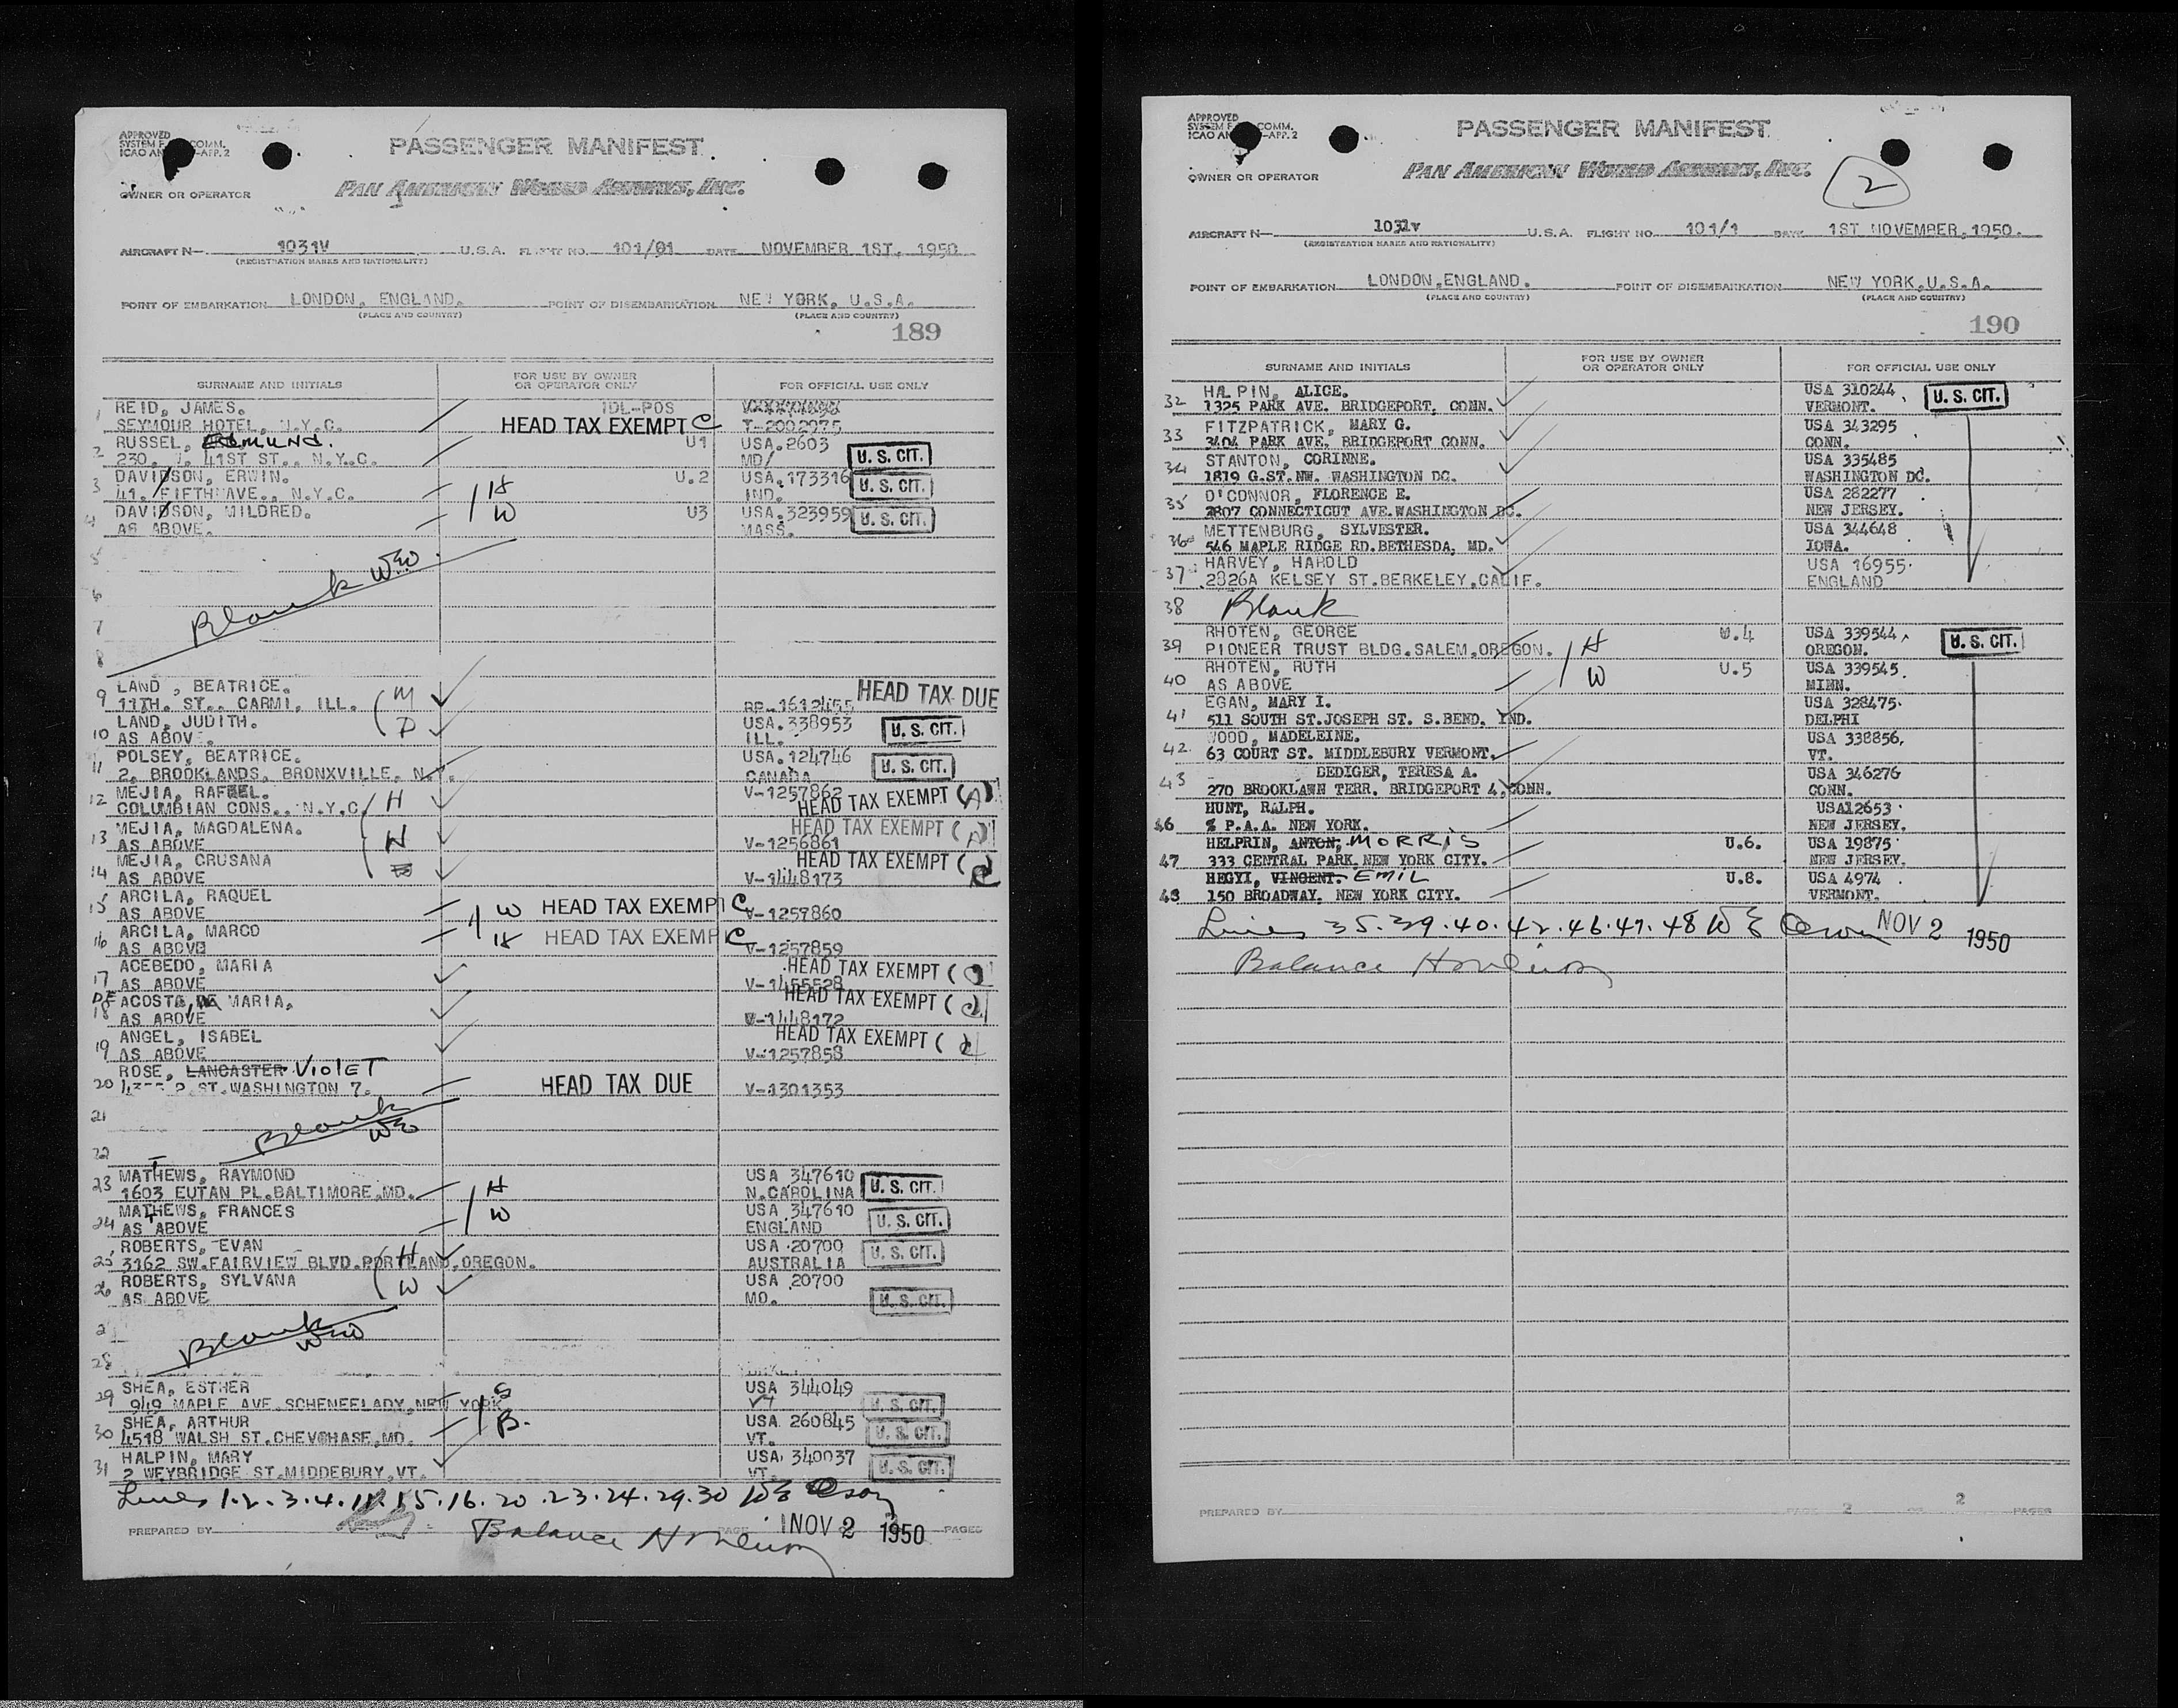 APPROVED
SYSTEM F COMM.
ICAO AN -APP. 2
PASSENGER MANIFEST
OWNER OR OPERATOR PAN AMERICAN WORLD AIRWAYS, INC.
AIRCRAFT N— 1031V U.S.A. FLIGHT NO. 101/01 DATE NOVEMBER 1ST. 1950
(REGISTRATION MARKS AND NATIONALITY)
POINT OF EMBARKATION LONDON, ENGLAND. POINT OF DISEMBARKATION NEW YORK, U.S.A.
(PLACE AND COUNTRY) (PLACE AND COUNTRY)
189
SURNAME AND INITIALS FOR USE BY OWNER OR OPERATOR ONLY FOR OFFICIAL USE ONLY
1 REID, JAMES. IDL-POS
SEYMOUR HOTEL, N.Y.C. HEAD TAX EXEMPT C T-2002975
2 RUSSEL, EDMUND. U1 USA.2603
230, W. 41ST ST., N.Y.C. MD/ U. S. CIT.
3 DAVIDSON, ERWIN. H U.2 USA.173316
41, FIFTH AVE., N.Y.C. IND. U. S. CIT.
4 DAVIDSON, MILDRED. W U3 USA.323959
AS ABOVE. MASS. U. S. CIT.
5
6
Blank
7
8
9 LAND, BEATRICE. M HEAD TAX DUE
11TH. ST., CARMI, ILL. RP-1612455
10 LAND, JUDITH. D USA.338953
AS ABOVE. ILL. U. S. CIT.
11 POLSEY, BEATRICE. USA.124746
2, BROOKLANDS, BRONXVILLE, N.Y. CANADA U. S. CIT.
12 MEJIA, RAFAEL. H V-1257862
COLUMBIAN CONS., N.Y.C. HEAD TAX EXEMPT (A)
13 MEJIA, MAGDALENA. W HEAD TAX EXEMPT (A)
AS ABOVE V-1256861
14 MEJIA, CRUSANA HEAD TAX EXEMPT (C)
AS ABOVE V-1448173
15 ARCILA, RAQUEL W HEAD TAX EXEMPT C
AS ABOVE V-1257860
16 ARCILA, MARCO H HEAD TAX EXEMPT C
AS ABOVE V-1257859
17 ACEBEDO, MARIA HEAD TAX EXEMPT (C)
AS ABOVE V-1455528
18 DE ACOSTA, MARIA. HEAD TAX EXEMPT (C)
AS ABOVE V-1448172
19 ANGEL, ISABEL HEAD TAX EXEMPT (C)
AS ABOVE V-1257858
20 ROSE, LANCASTER VIOLET
P ST. WASHINGTON 7. HEAD TAX DUE V-1301353
21
Blank
22
23 MATHEWS, RAYMOND H USA 347610
1603 EUTAN PL.BALTIMORE,MD. N.CAROLINA U. S. CIT.
24 MATHEWS, FRANCES W USA 347610
AS ABOVE ENGLAND U. S. CIT.
25 ROBERTS, EVAN H USA 20700
3162 SW.FAIRVIEW BLVD.PORTLAND,OREGON. AUSTRALIA U. S. CIT.
26 ROBERTS, SYLVANA W USA 20700
AS ABOVE MO. U. S. CIT.
Blank
28
29 SHEA, ESTHER S USA 344049
949 MAPLE AVE.SCHENEELADY,NEW YORK. VT U. S. CIT.
30 SHEA, ARTHUR B. USA. 260845
4518 WALSH ST.CHEVCHASE,MD. VT. U. S. CIT.
31 HALPIN, MARY USA. 340037
2 WEYBRIDGE ST.MIDDEBURY,VT. VT. U. S. CIT.
Lines 1.2.3.4.11.15.16.20.23.24.29.30
PREPARED BY Balance PAGE NOV 2 1950 PAGES
APPROVED
SYSTEM F COMM.
ICAO AN -APP. 2
PASSENGER MANIFEST
OWNER OR OPERATOR PAN AMERICAN WORLD AIRWAYS, INC. 2
AIRCRAFT N— 1031v U.S.A. FLIGHT NO. 101/1 DATE 1ST NOVEMBER,1950.
(REGISTRATION MARKS AND NATIONALITY)
POINT OF EMBARKATION LONDON,ENGLAND. POINT OF DISEMBARKATION NEW YORK,U.S.A.
(PLACE AND COUNTRY) (PLACE AND COUNTRY)
190
SURNAME AND INITIALS FOR USE BY OWNER OR OPERATOR ONLY FOR OFFICIAL USE ONLY
32 HALPIN, ALICE. USA 310244
1325 PARK AVE. BRIDGEPORT, CONN. VERMONT. U. S. CIT.
33 FITZPATRICK, MARY G. USA 343295
3404 PARK AVE, BRIDGEPORT CONN. CONN.
34 STANTON, CORINNE. USA 335485
1819 G.ST.NW. WASHINGTON DC. WASHINGTON DC.
35 O'CONNOR, FLORENCE E. USA 282277
2807 CONNECTICUT AVE.WASHINGTON DC. NEW JERSEY.
36 METTENBURG, SYLVESTER. USA 344648
546 MAPLE RIDGE RD.BETHESDA, MD. IOWA.
37 HARVEY, HAROLD USA 16955.
2826A KELSEY ST.BERKELEY,CALIF. ENGLAND
38 Blank
39 RHOTEN, GEORGE H U.4 USA 339544
PIONEER TRUST BLDG.SALEM,OREGON. OREGON. U. S. CIT.
40 RHOTEN, RUTH W U.5 USA 339545
AS ABOVE MINN.
41 EGAN, MARY I. USA 328475.
511 SOUTH ST.JOSEPH ST. S.BEND, IND. DELPHI
42. WOOD, MADELEINE. USA 338856,
63 COURT ST. MIDDLEBURY VERMONT. VT.
43 DEDIGER, TERESA A. USA 346276
270 BROOKLAWN TERR. BRIDGEPORT 4,CONN. CONN.
46 HUNT, RALPH. USA12653
% P.A.A. NEW YORK. NEW JERSEY.
47 HELPRIN, ANTON, MORRIS U.6. USA 19875
333 CENTRAL PARK NEW YORK CITY. NEW JERSEY.
48 HEGYI, VINCENT. EMIL U.8. USA 4974
150 BROADWAY, NEW YORK CITY. VERMONT.
Lines 35.39.40.42.46.47.48 NOV 2 1950
Balance
PREPARED BY PAGE 2 OF 2 PAGES